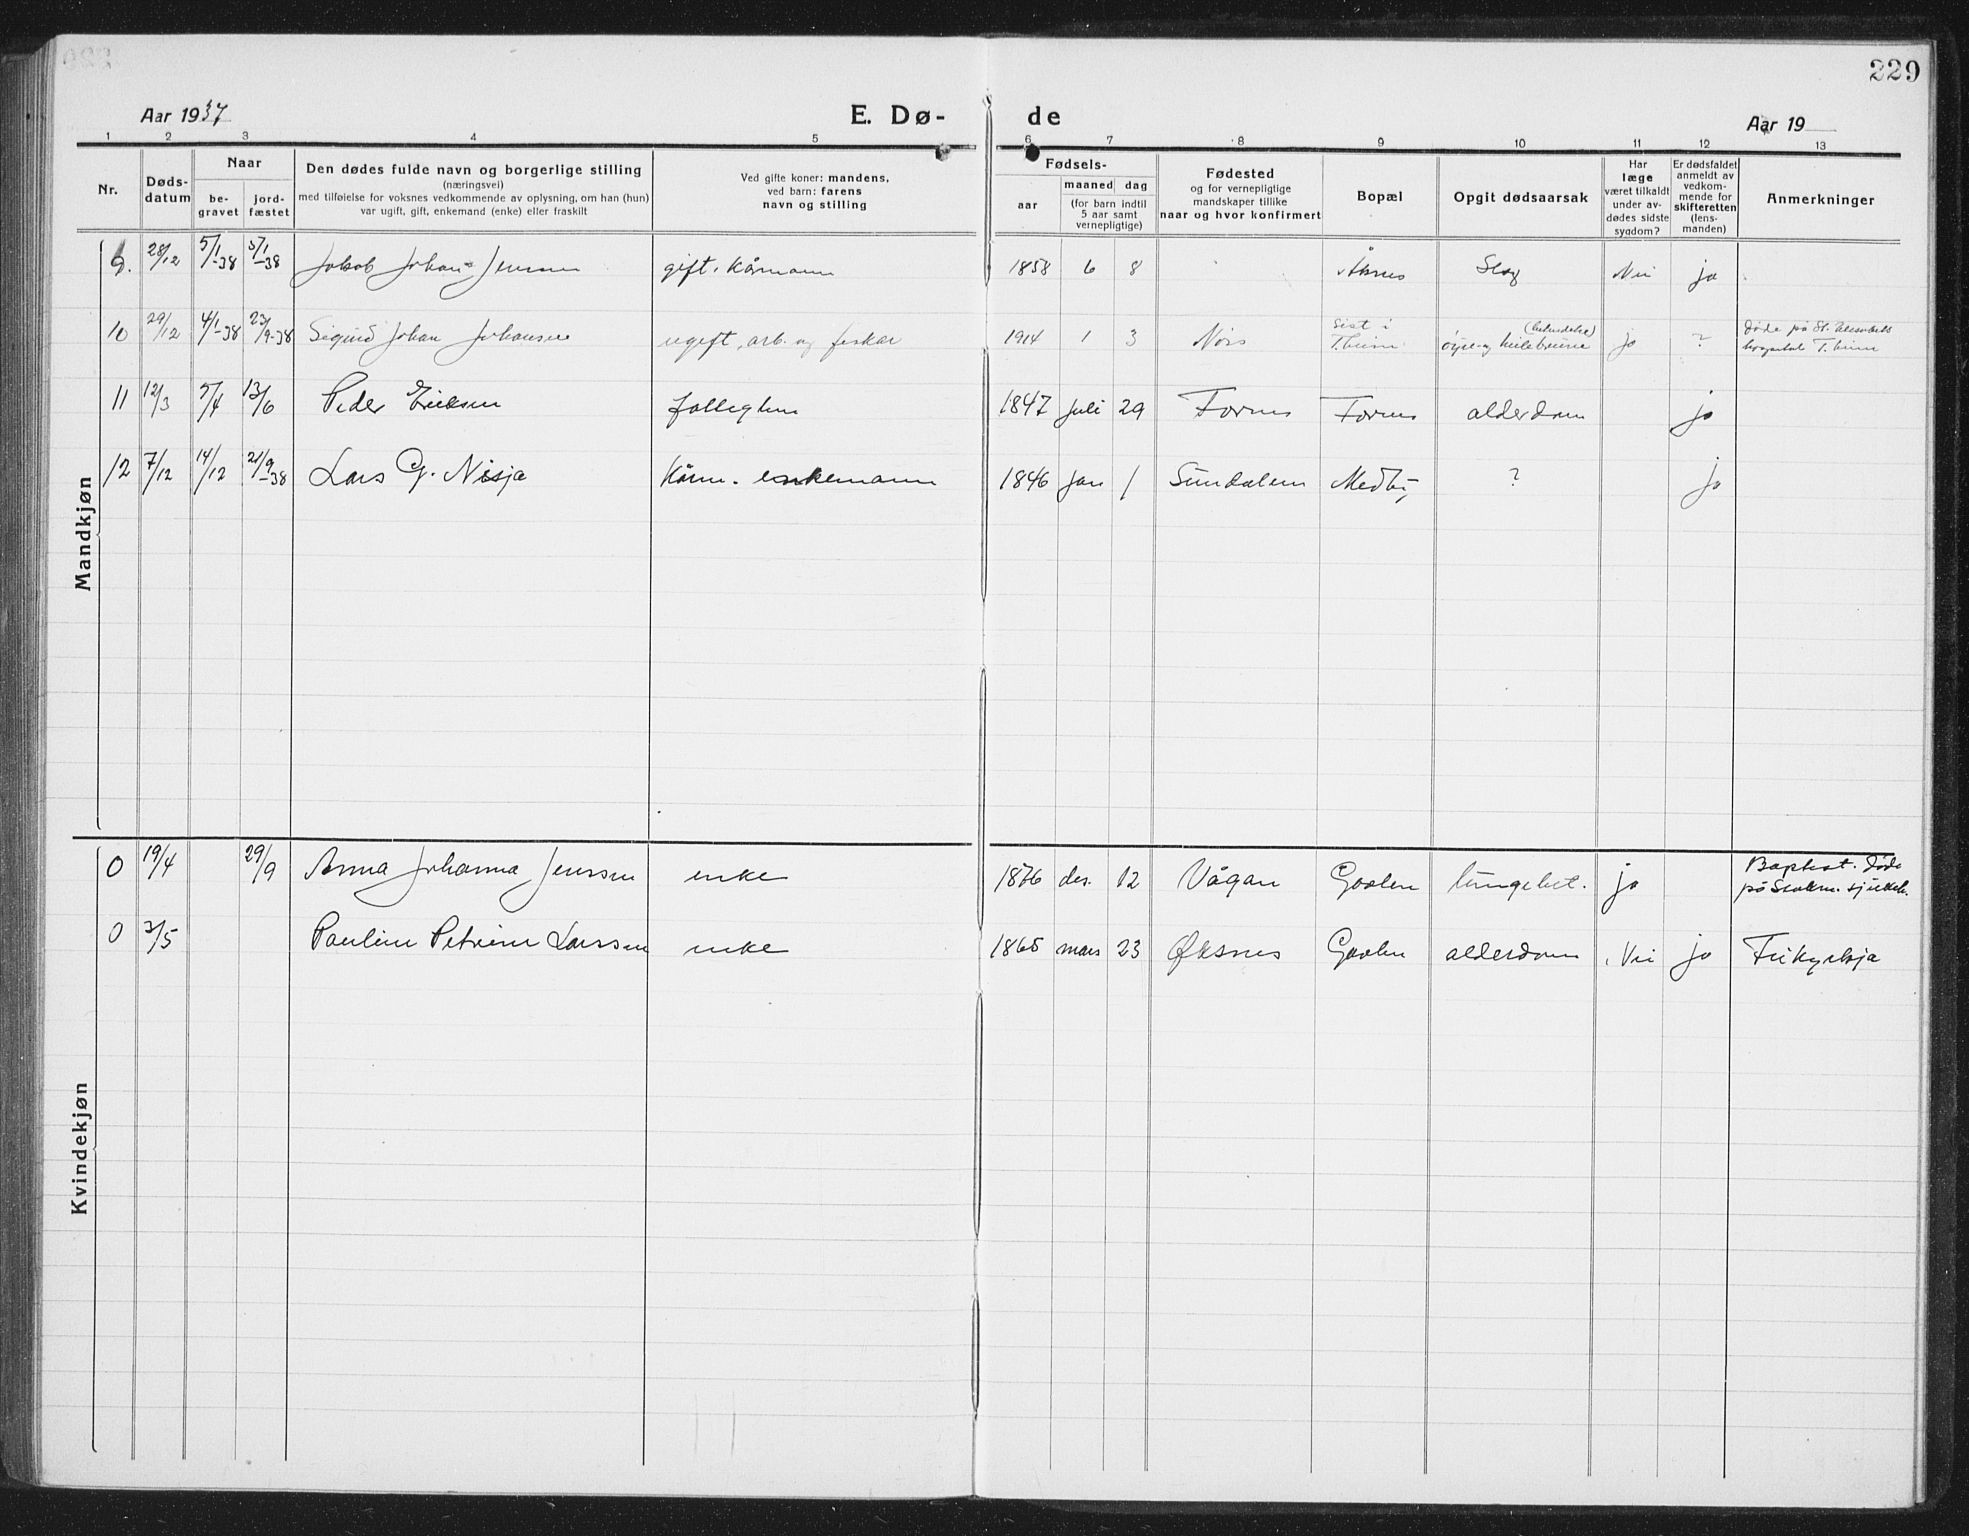 229
Aar 1937
E. Dø-
de
Aar 19
1 2 3 4 5 6 7 8 9 10 11 12 13
Nr.
Døds-
datum
Naar
be-
gravet
jord-
fæstet
Den dødes fulde navn og borgerlige stilling
(næringsvei)
med tilføielse for voksnes vedkommende av oplysning, om han (hun)
var ugift, gift, enkemand (enke) eller fraskilt
Ved gifte koner: mandens,
ved barn: farens
navn og stilling
Fødsels-
aar
maaned dag
(for barn indtil
5 aar samt
vernepligtige)
Fødested
og for vernepligtige
mandskaper tillike
naar og hvor konfirmert
Bopæl
Opgit dødsaarsak
Har
læge
været tilkaldt
under av-
dødes sidste
sygdom?
Er dødsfaldet
anmeldt av
vedkom-
mende for
skifteretten
(lens-
manden)
Anmerkninger
Mandkjøn
9. 28/12 5/1-38 5/1-38 Jakob Johan Jenssen gift, kårmann 1858 6 8 Åsnes Slag Nei ja
10 29/12 4/1-38 23/9-38 Sigurd Johan Johansen ugift, arb. og fiskar 1914 1 3 Nøss Sist i T.heim øyre- og heilebetennelse ja ? Døde på St. Elisabeths hospital T.heim
11 12/3 5/4 13/6 Peder Eriksen 1847 juli 29 Fornes Fornes alderdom ja
12 7/12 14/12 21/9-38 Lars G. Nisja Kårm. enkemann 1846 jan 1 Sundalen Medby ? ja
Kvindekjøn
0 19/4 29/9 Anna Johanna Jenssen enke 1876 des. 12 Vågan lungebet. ja Baptist. Døde på Stokm. sjukeh.
0 3/5 Pauline Petrine Larssen enke 1865 mars 23 Øksnes alderdom Nei ja Frikyrkja